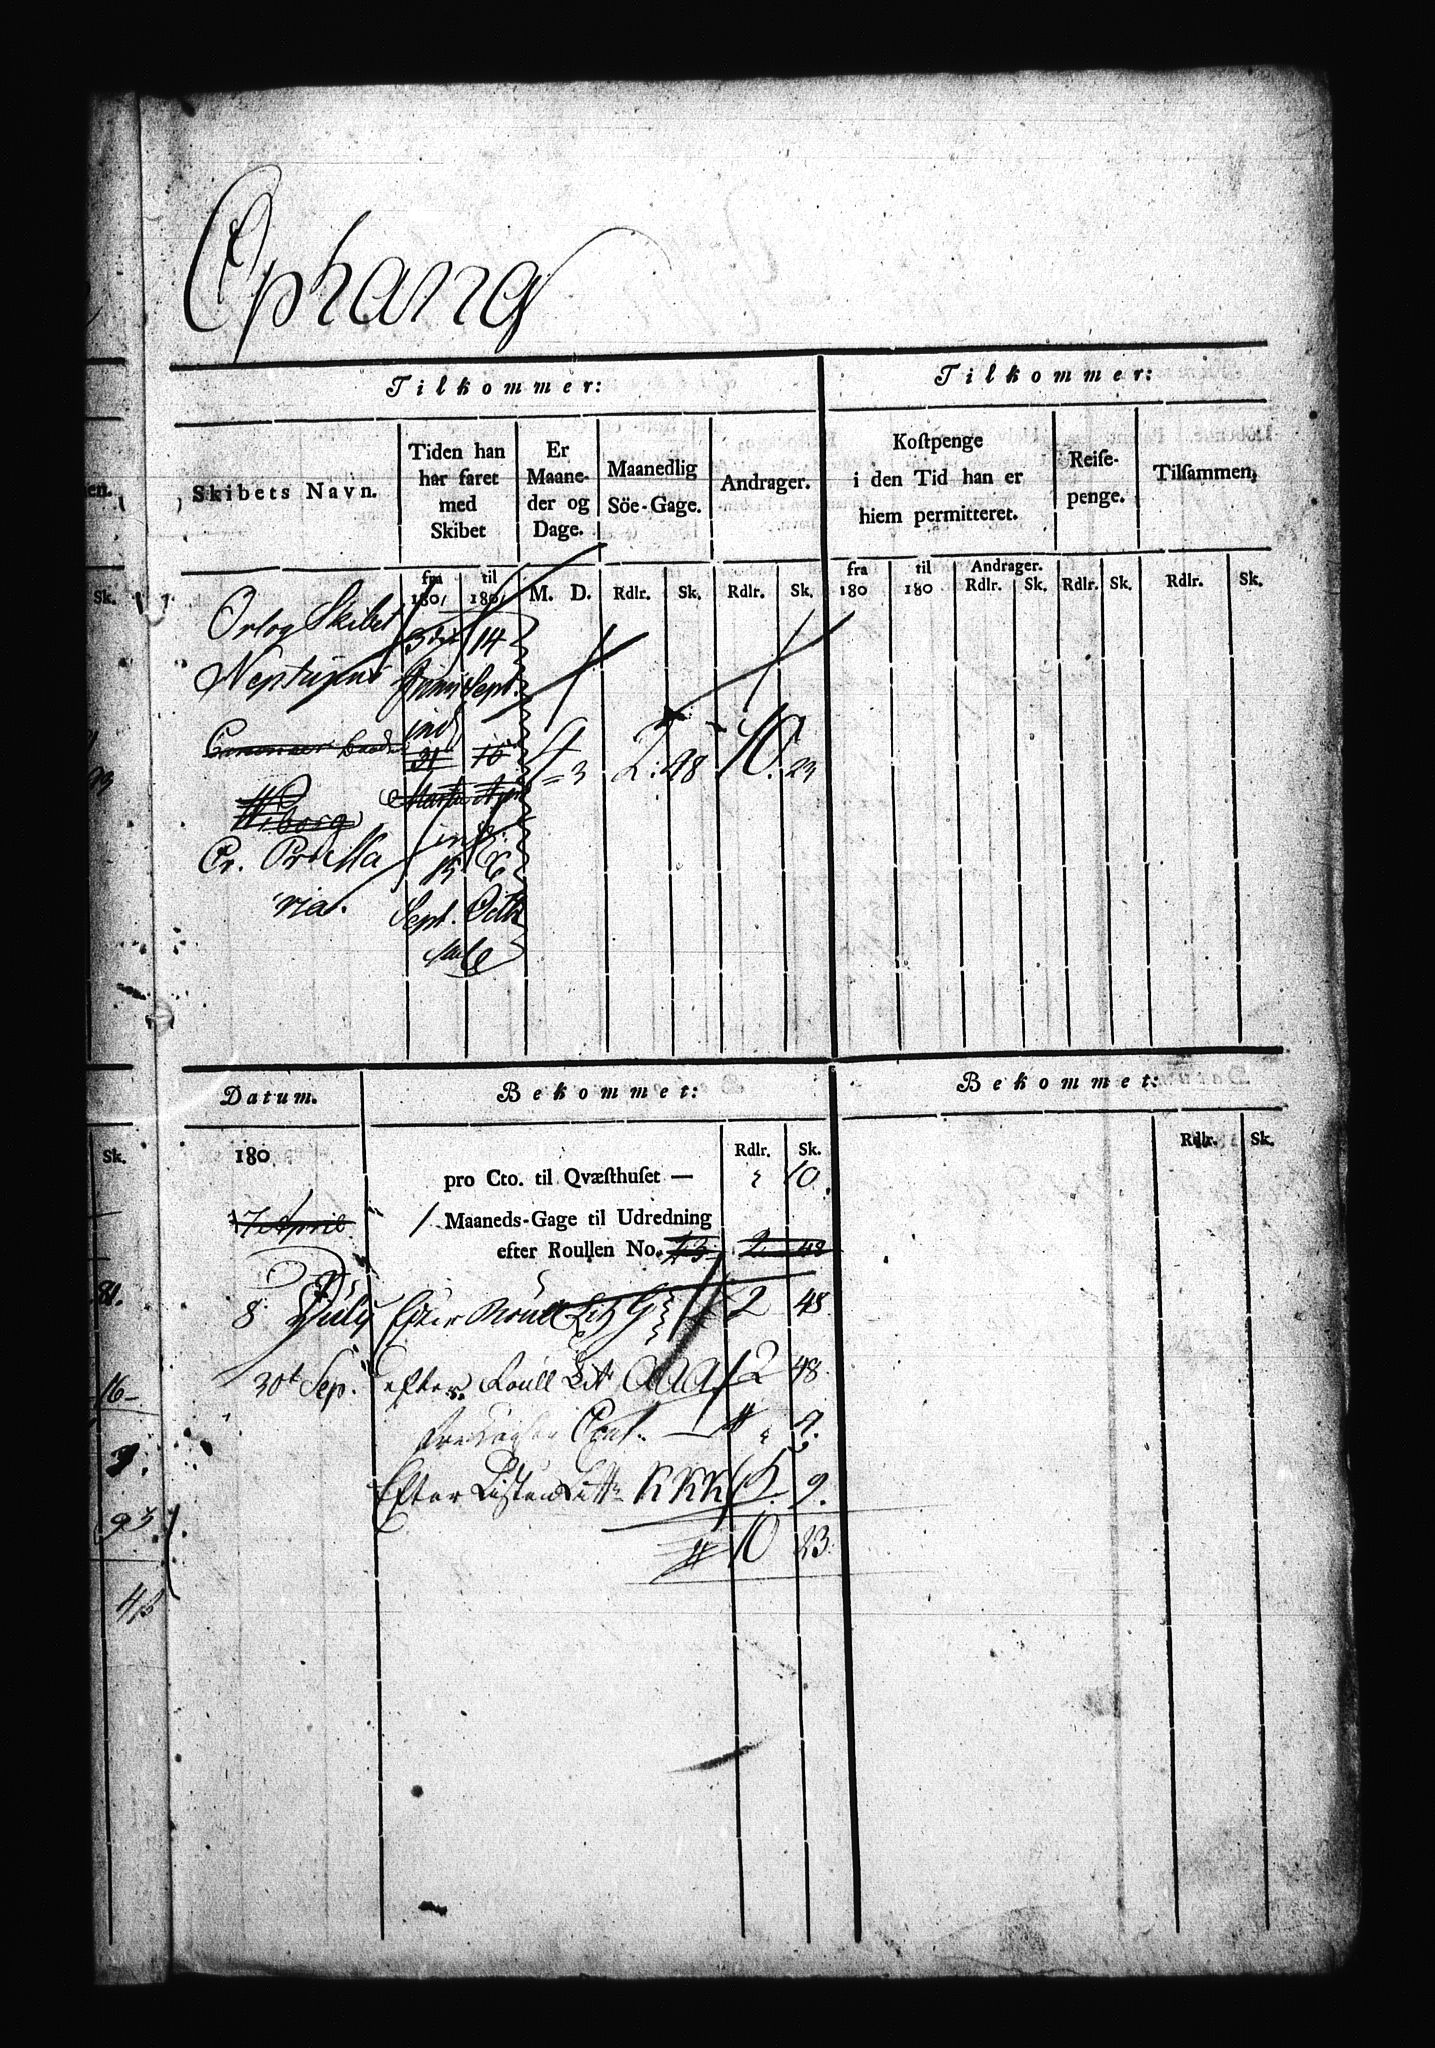 Ophang
Tilkommer:
Tilkommer:
Skibets Navn.
Tiden han har faret med Skibet
Er Maaneder og Dage.
Maanedlig Söe-Gage.
Andrager.
Kostpenge i den Tid han er hiem permitteret.
Reisepenge.
Tilsammen,
en.
Sk.
fra 1801
til 1801
M. D.
Rdlr. Sk.
Rdlr. Sk.
fra 180
til 180
Andrager.
Rdlr. Sk.
Rdlr. Sk.
Rdlr. Sk.
Orlog Skibet 3die 14
Neptunus Sept.
incl
31 16
4 = 3 2: 48 10. 23
Martii Apr
Wiborg
Pr.
15
ria. Sept. Octb
Datum.
Bekommet:
Bekommet:
Sk.
180
Rdlr. Sk.
Rdlr. Sk.
pro Cto. til Qvæsthuset — 10.
17 April 1 Maaneds-Gage til Udredning
efter Roullen No. 13 2 48
8 July Efter Roull Lit G 2 48
30t Sep. efter Roull Litr AAA 2 48
Cont. 7.
Efter Listen Littr KKK 5. 9.
10 23.
81.
16
93